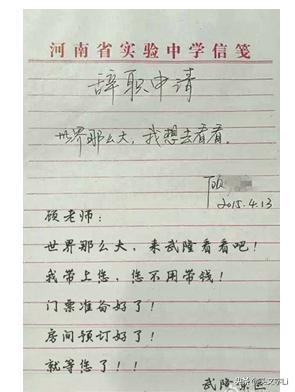 河南省实验中学信笺
辞职申请
世界那么大，我想去看看。
顾
2015.4.13
顾老师：
世界那么大，来武隆看看吧！
我带上您，您不用带钱！
门票准备好了！
房间预订好了！
就等您了！！
武隆景区